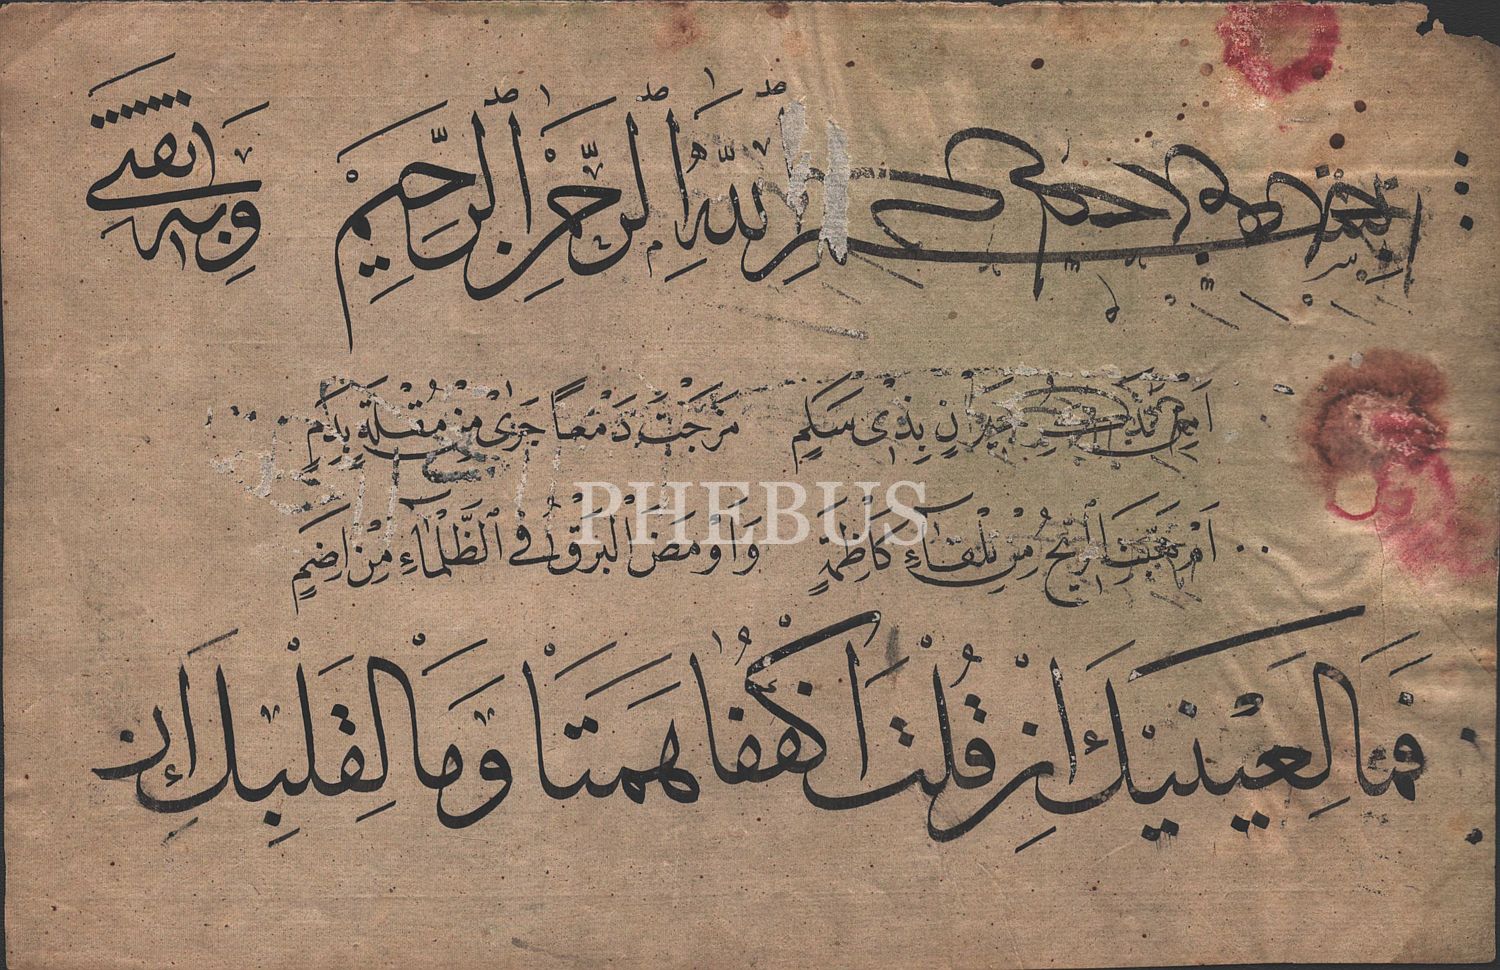 بسم الله الرحمن الرحيم وبه ثقتى
أمن تذكر جيران بذى سلم مزجت دمعا جرى من مقلة بدم
ام هبت الريح من تلقاء كاظمة واومض البرق فى الظلماء من اضم
فما لعينيك ان قلت اكففا همتا وما لقلبك ان
PHEBUS